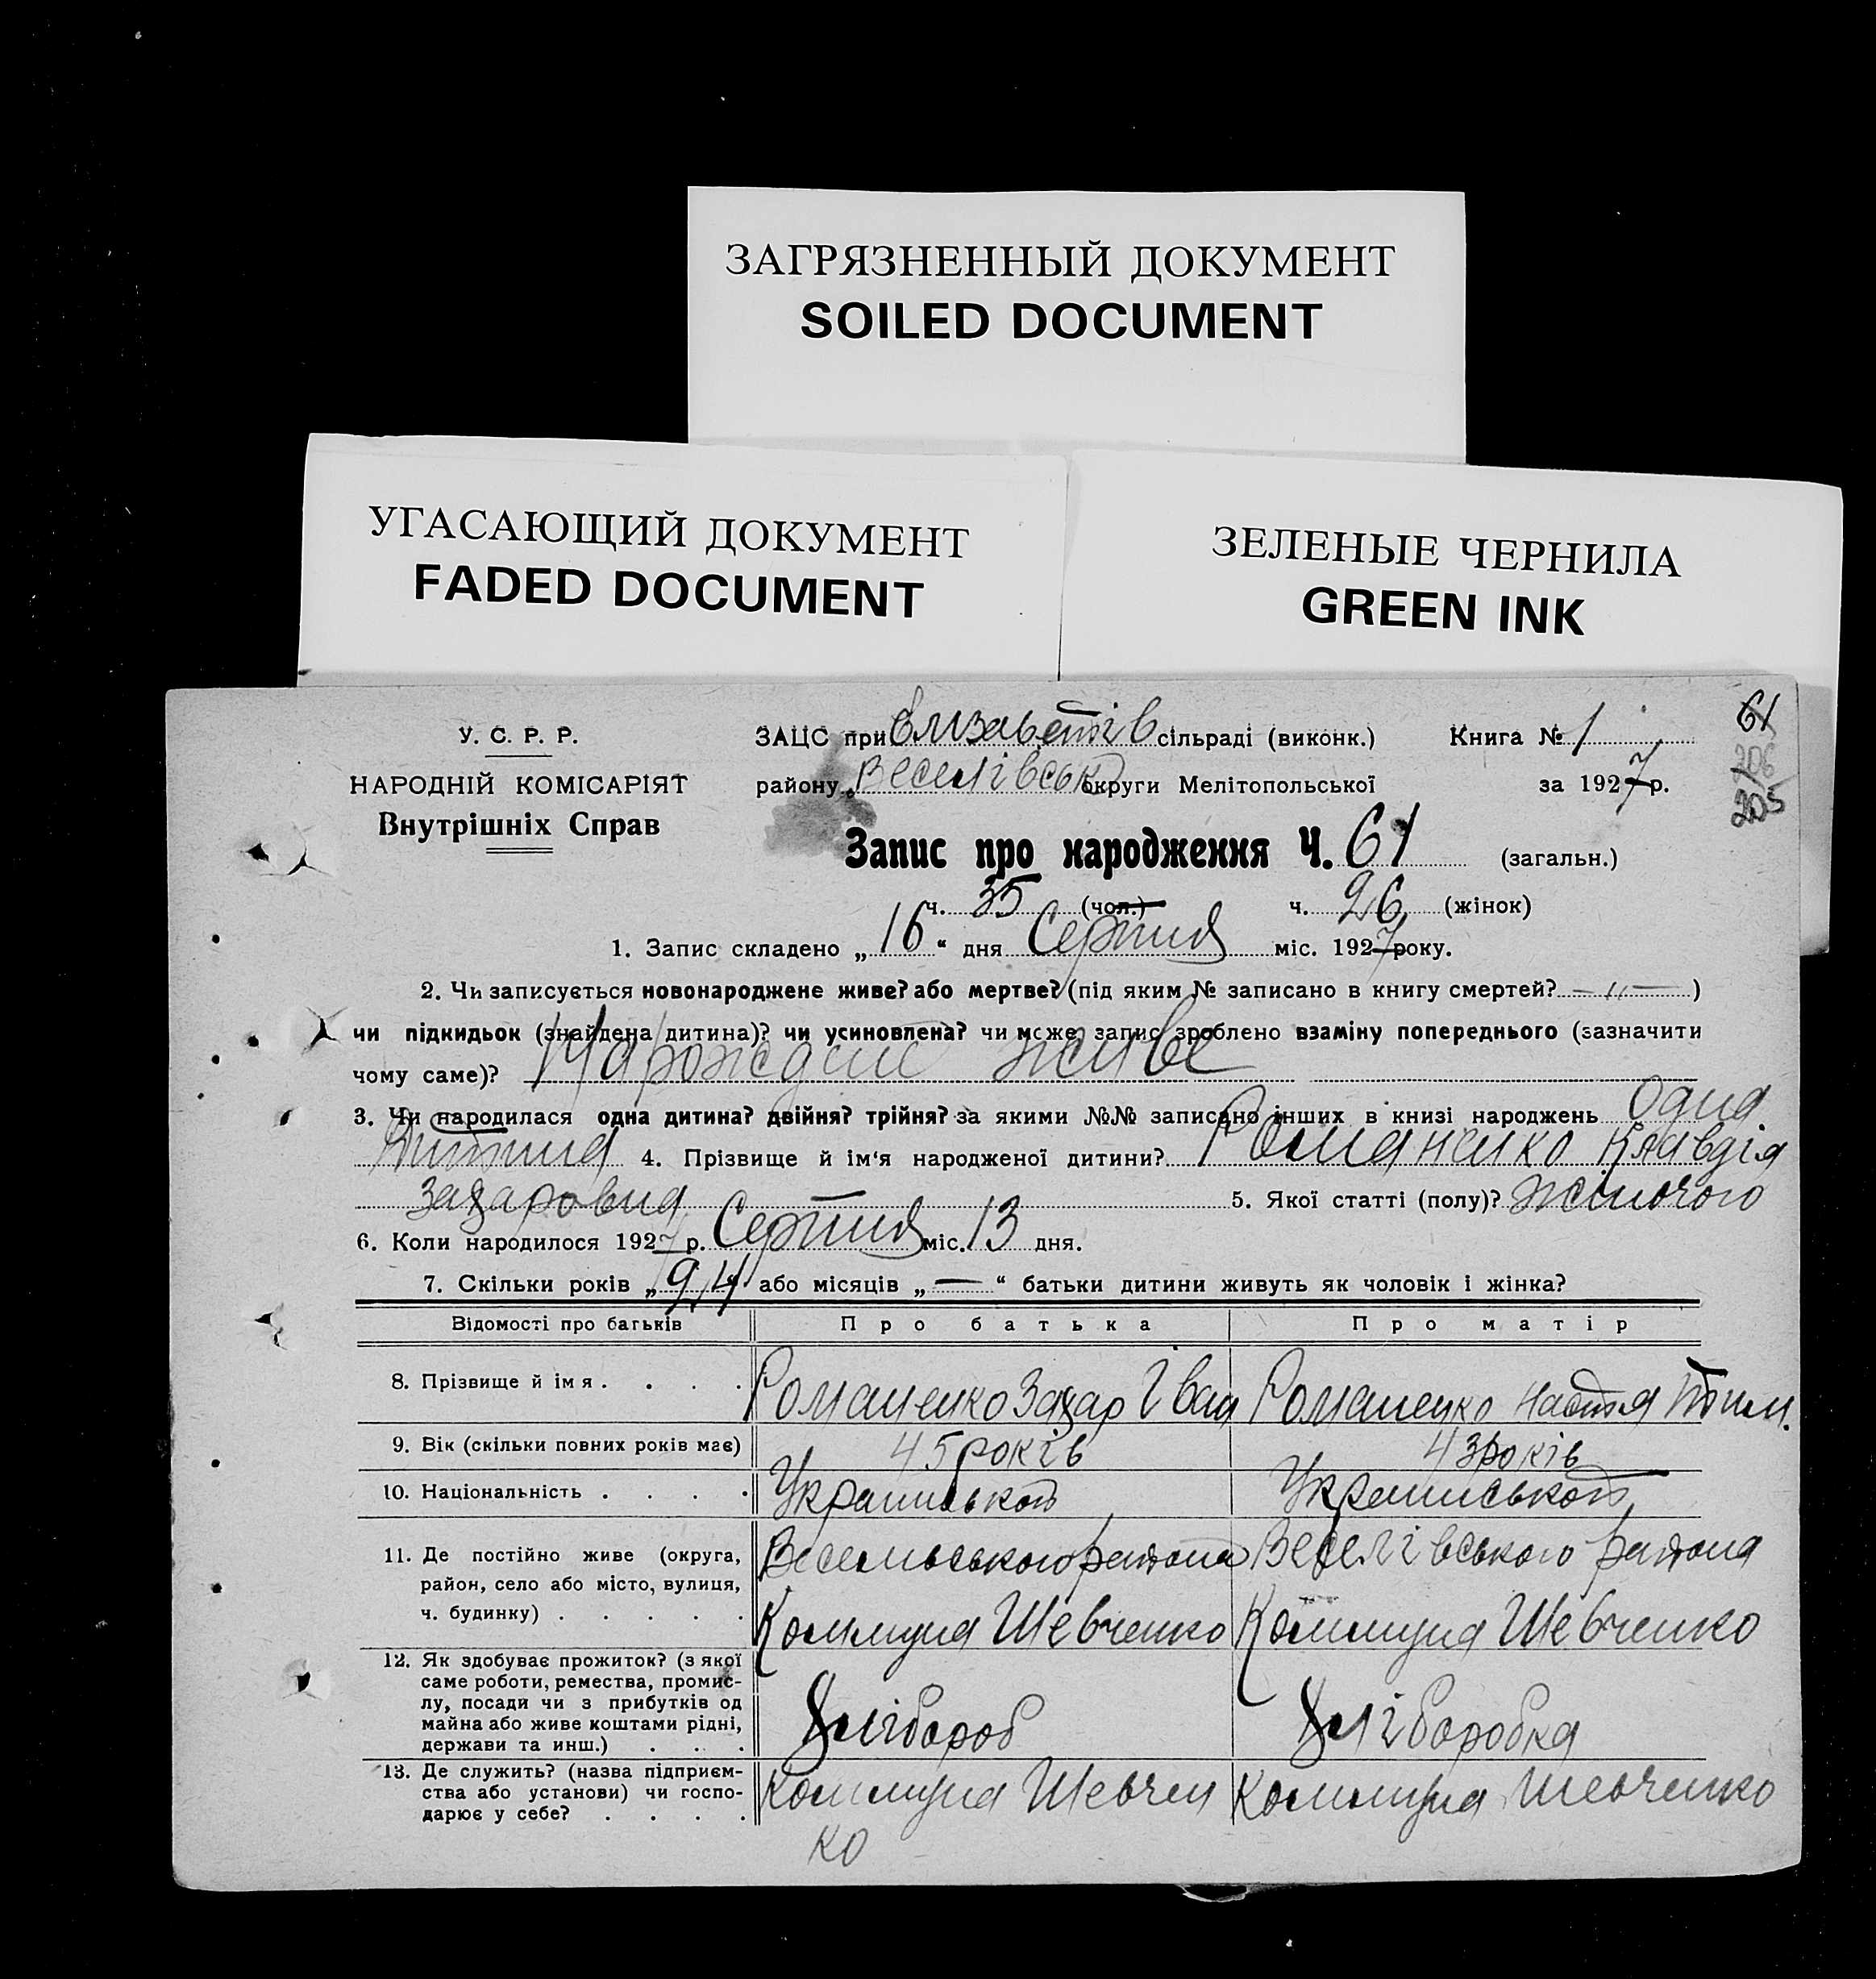 ЗАГРЯЗНЕННЫЙ ДОКУМЕНТ
SOILED DOCUMENT
УГАСАЮЩИЙ ДОКУМЕНТ
FADED DOCUMENT
ЗЕЛЕНЫЕ ЧЕРНИЛА
GREEN INK
У. С. Р. Р.
НАРОДНІЙ КОМІСАРІЯТ
Внутрішніх Справ
ЗАЦС при Єлизаветів сільраді (виконк.) Книга № 1
61
206
205
району Веселівськ округи Мелітопольської за 1927 р.
Запис про народження Ч. 61 (загальн.)
ч. 35 (чол.) ч. 26 (жінок)
1. Запис складено „ 16 “ дня Серпня міс. 1927 року.
2. Чи записується новонароджене живе? або мертве? (під яким № записано в книгу смертей? — „ — )
чи підкидьок (знайдена дитина)? чи усиновлена? чи може запис зроблено взаміну попереднього (зазначити
чому саме)? живе
3. Чи народилася одна дитина? двійня? трійня? за якими №№ записано інших в книзі народжень Одна
дитина 4. Прізвище й ім'я народженої дитини? Романенко Клавдія
Захаровна 5. Якої статті (полу)? жіночого
6. Коли народилось 1927 р. Серпня міс. 13 дня.
7. Скільки років „ 24 “ або місяців „ — “ батьки дитини живуть як чоловік і жінка?
Відомості про батьків Про батька Про матір
8. Прізвище й ім я . . . . Романенко Захар Іван Романенко Настя
9. Вік (скільки повних років має) 45 років 43 років
10. Національність . . . . Українськой Українськой
11. Де постійно живе (округа,
район, село або місто, вулиця,
ч. будинку) . . . . .
Весельвського района Веселівського района
Коммуна Шевченко Коммуна Шевченко
12. Як здобуває прожиток? (з якої
саме роботи, ремества, промис-
лу, посади чи з прибутків од
майна або живе коштами рідні,
держави та инш.) . . .
Хлібороб Хліборобка
13. Де служить? (назва підприєм-
ства або установи) чи госпо-
дарює у себе? . . . .
Коммуна Шевчен Коммуна Шевченко
ко